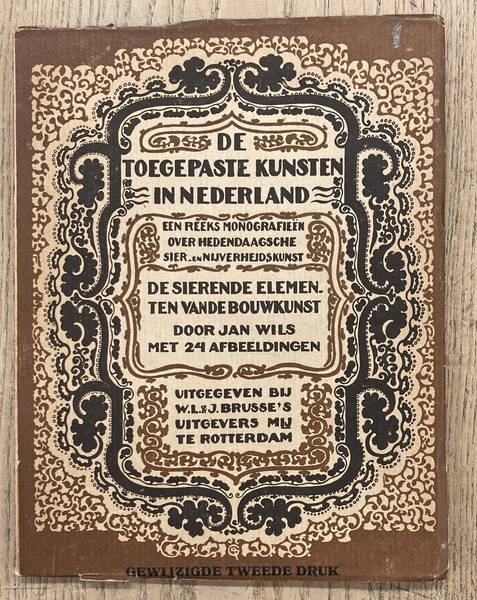 DE
TOEGEPASTE KUNSTEN
IN NEDERLAND
EEN REEKS MONOGRAFIEËN
OVER HEDENDAAGSCHE
SIER- EN NIJVERHEIDSKUNST
DE SIERENDE ELEMEN-
TEN VANDE BOUWKUNST
DOOR JAN WILS
MET 24 AFBEELDINGEN
UITGEGEVEN BIJ
W.L. & J. BRUSSE'S
UITGEVERS MIJ
TE ROTTERDAM
GEWIJZIGDE TWEEDE DRUK